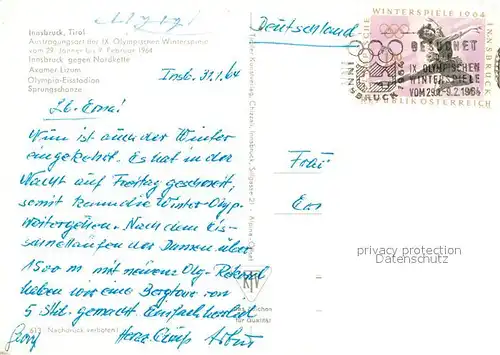 Innsbruck, Tirol
Austragungsort der IX. Olympischen Winterspiele
vom 29. Jänner bis 9. Februar 1964
Innsbruck gegen Nordkette
Axamer Lizum
Olympia-Eisstadion
Sprungschanze
Deutschland
WINTERSPIELE 1964
INNSBRUCK
REPUBLIK ÖSTERREICH
INNSBRUCK 1964
BESUCHET
IX. OLYMPISCHEN
WINTERSPIELE
VOM 29.1.-9.2.1964
Insb. 31.1.64
Lb. Erna!
Nun ist auch der Winter
eingekehrt. Es hat in der
Nacht auf Freitag geschneit,
somit kann die Winter-Olymp.
weitergehen. Nach dem Eis-
schnellaufen der Damen über
1500 m mit neuem Oly-Rekord
haben wir eine Bergtour von
5 Std. gemacht. Einfach herrlich
Georg
Herzl.
Frau
privacy protection
AKPool.de
für Qualität
613 Nachdruck verboten!